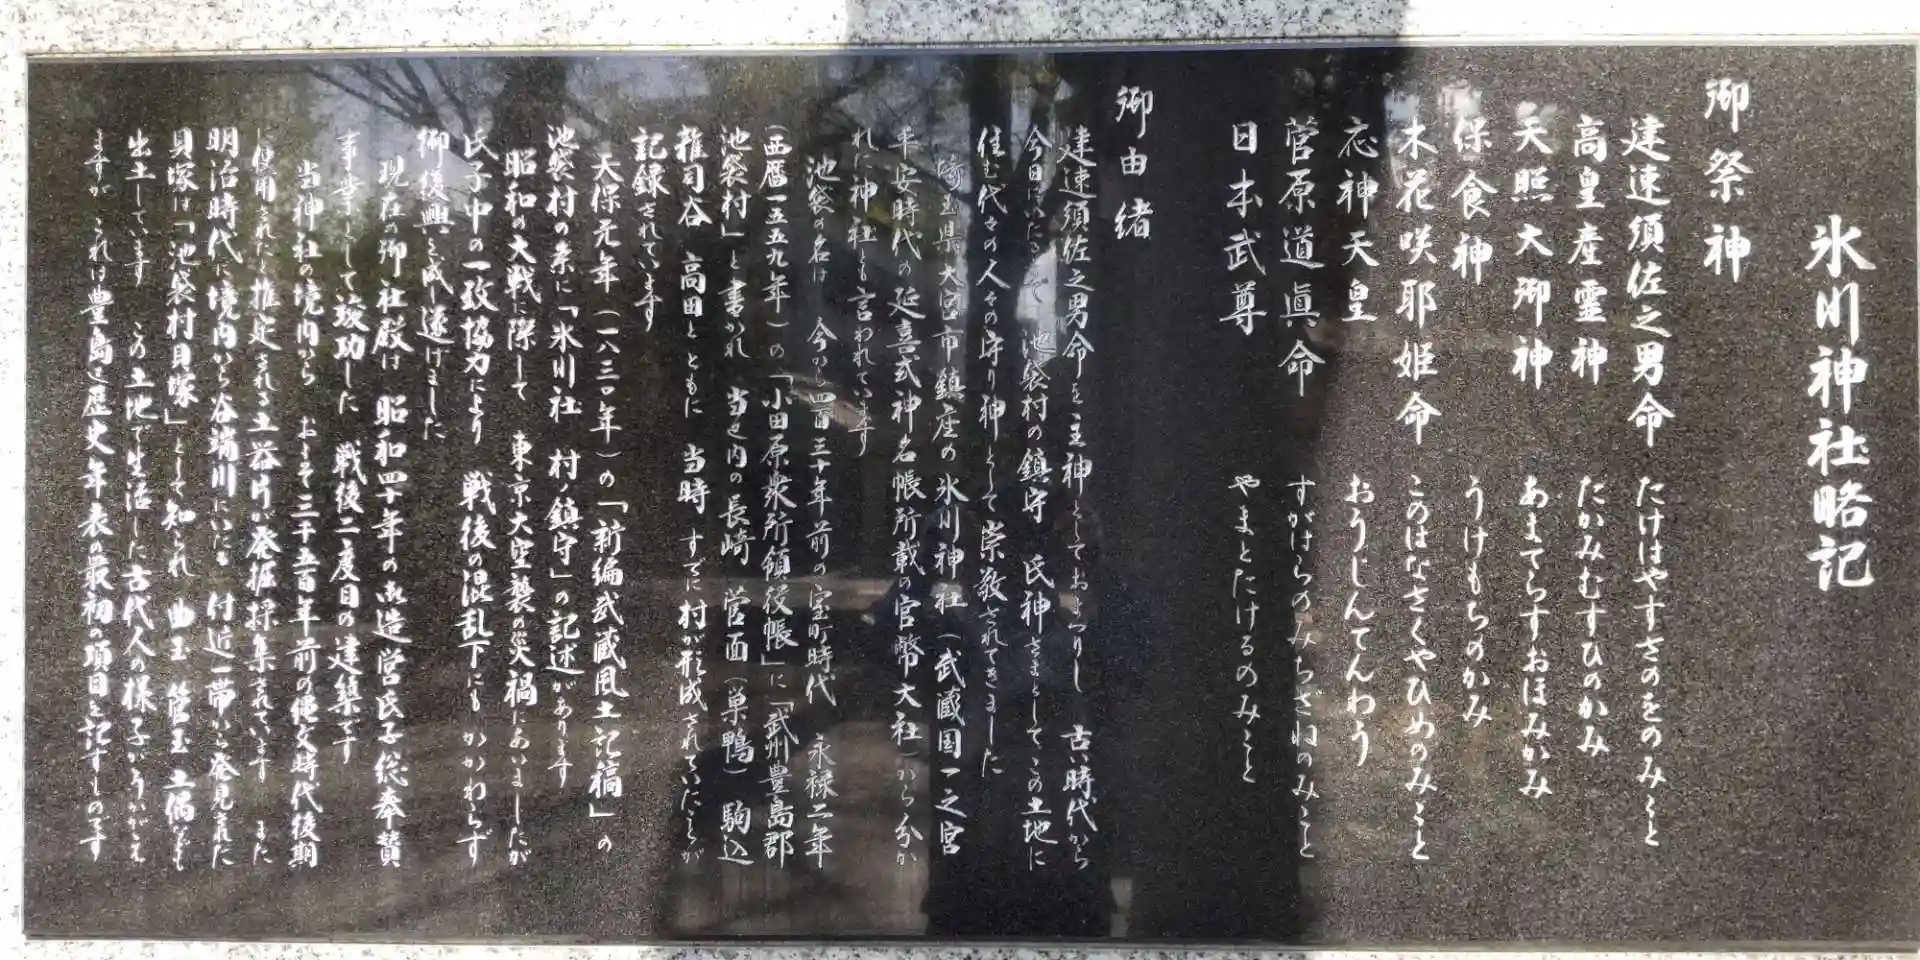 氷川神社略記
御祭神
建速須佐之男命　たけはやすさのをのみこと
高皇産霊神　たかみむすひのかみ
天照大御神　あまてらすおほみかみ
保食神　うけもちのかみ
木花咲耶姫命　このはなさくやひめのみこと
応神天皇　おうじんてんわう
菅原道眞命　すがはらのみちざねのみこと
日本武尊　やまとたけるのみこと
御由緒
建速須佐之男命を主神としておまつりし　古い時代から
今日にいたるまで　池袋村の鎮守　氏神さまとしてこの土地に
住む代々の人々の守り神として崇敬されてきました
埼玉県大宮市鎮座の氷川神社（武蔵国一之宮
平安時代の延喜式神名帳所載の官幣大社）から分か
れた神社とも言われています
池袋の名は　今から四百三十年前の室町時代　永禄二年
（西暦一五五九年）の「小田原衆所領役帳」に「武州豊島郡
池袋村」と書かれ　当区内の長崎　菅面（巣鴨）駒込
雑司谷　高田とともに　当時　すでに村が形成されていたことが
記録されています
天保元年（一八三〇年）の「新編武蔵風土記稿」の
池袋村の条に「氷川社　村ノ鎮守」の記述があります
昭和の大戦に際して　東京大空襲の災禍にあいましたが
氏子中の一致協力により　戦後の混乱下にもかかわらず
御復興を成し遂げました
現在の御社殿は　昭和四十年の御造営氏子総奉賛
事業として竣功した　戦後二度目の建築です
当神社の境内から　およそ三千五百年前の縄文時代後期
に使用されたと推定される土器片が発掘採集されています　また
明治時代に境内から谷端川にいたる　付近一帯から発見された
貝塚は「池袋村貝塚」として知られ　曲玉　管玉　土偶なども
出土しています　この土地で生活した古代人の様子がうかがえ
ますが　これは豊島区歴史年表の最初の項目を記すものです